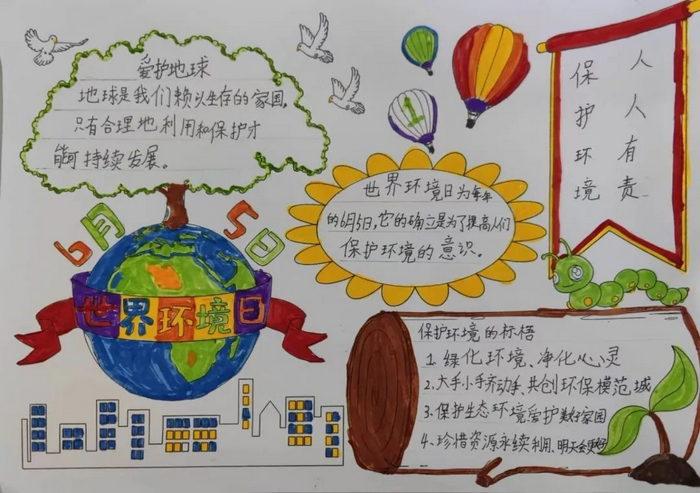 爱护地球
地球是我们赖以生存的家园,
只有合理地利用和保护才
能可持续发展。
6月5日
世界环境日
世界环境日为每年
的6月5日,它的确立是为了提高人们
保护环境的意识。
保护环境
人人有责
保护环境的标语
1.绿化环境、净化心灵
2.大手小手齐动手 共创环保模范城
3.保护生态环境爱护家园
4、珍惜资源永续利用、明天会更好